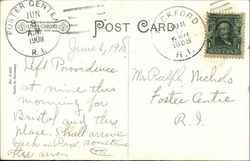 FOSTER CENTE
JUN
A.M.
1908
R.I.
POST CARD
OCKFORD
JUN
5 PM
1908
R.I.
June 6, 1908
Left Providence
at nine this
morning for
Bristol and this
place. Shall arrive
back in Prov. sometime
after seven
Mr Ralph Nichols
Foster Centre
R. I.